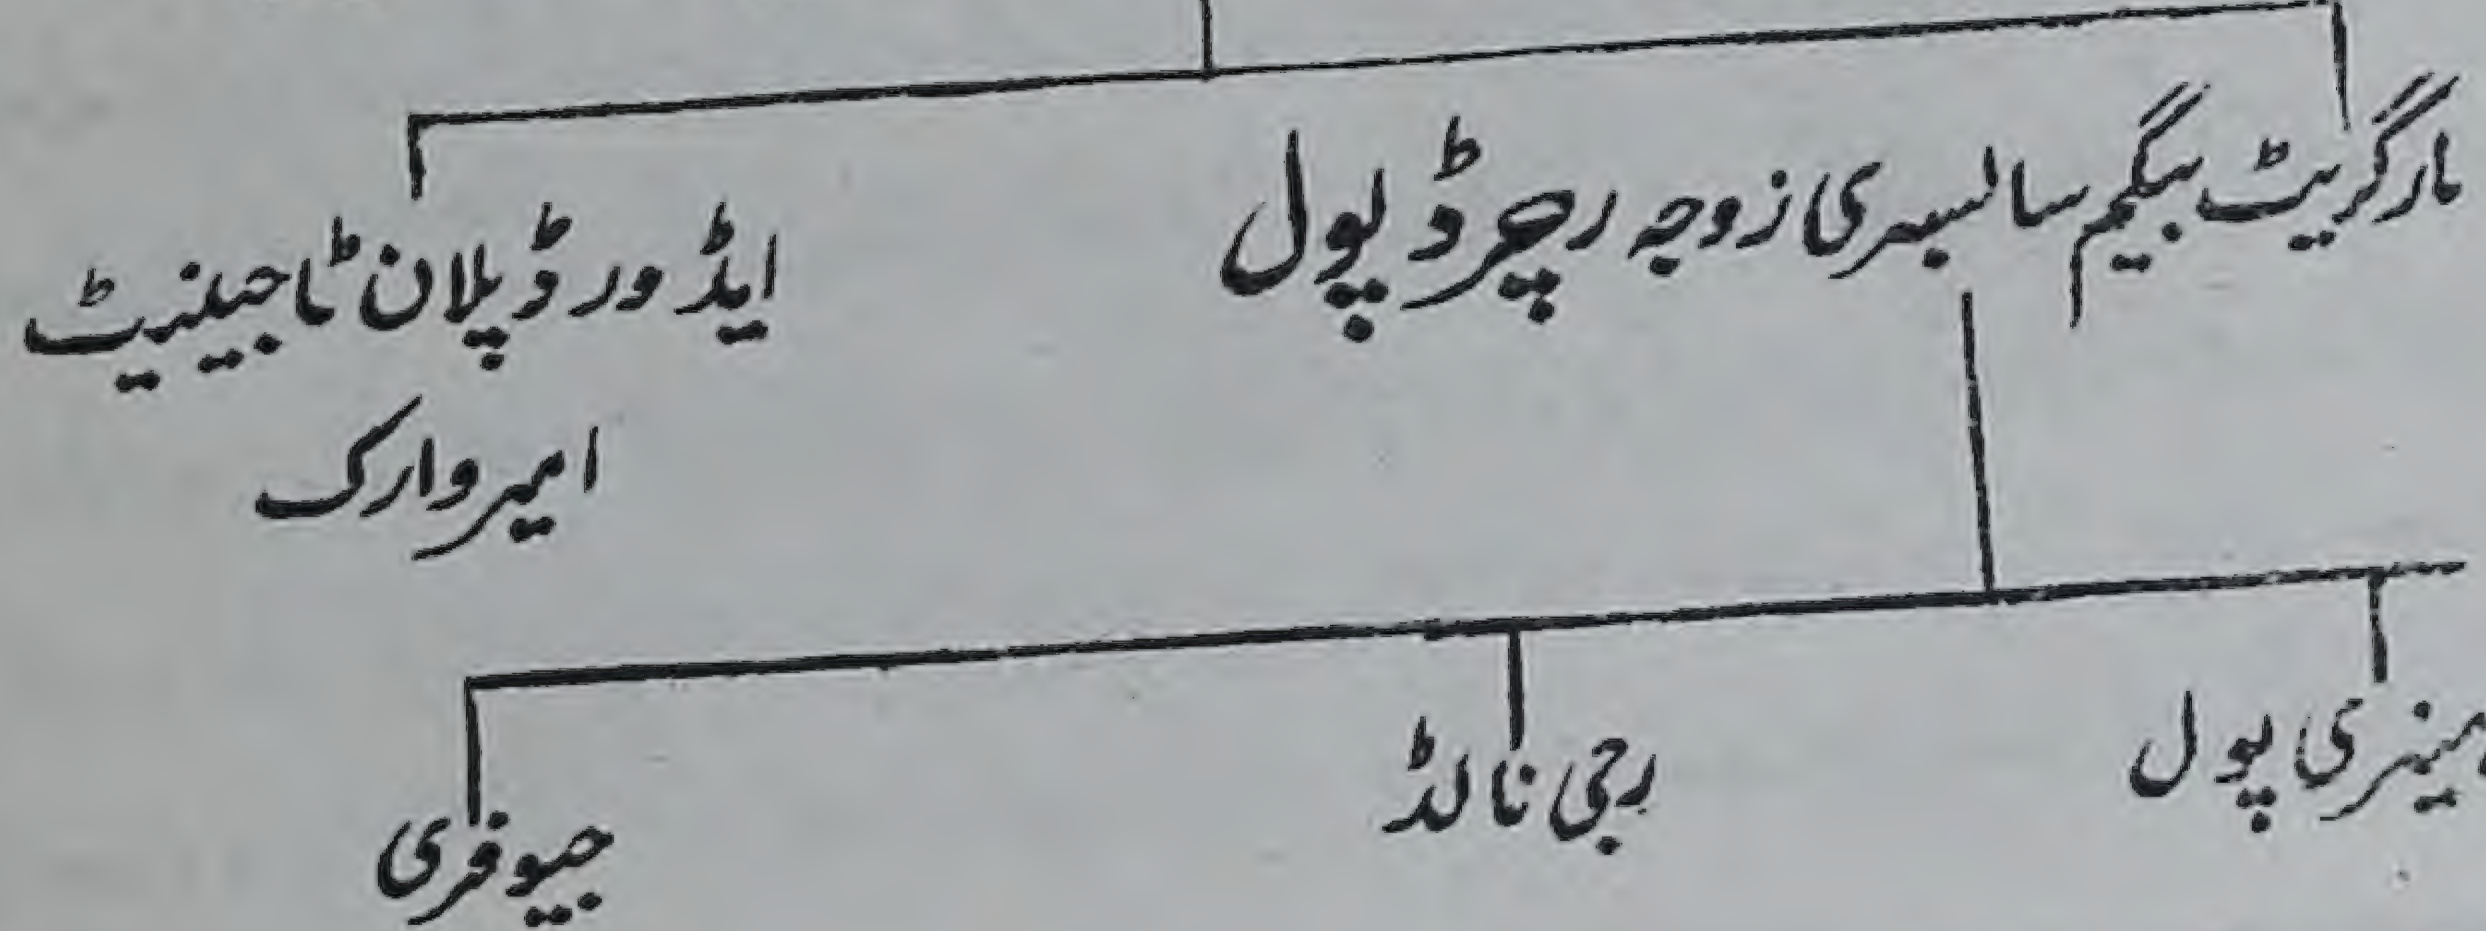 مارگریٹ بیگم سالسبری زوجہ رچرڈ پول
ایڈورڈ پلان ٹاجینیٹ
امیر وارک
ہینری پول
رجی نالڈ
جیوفری